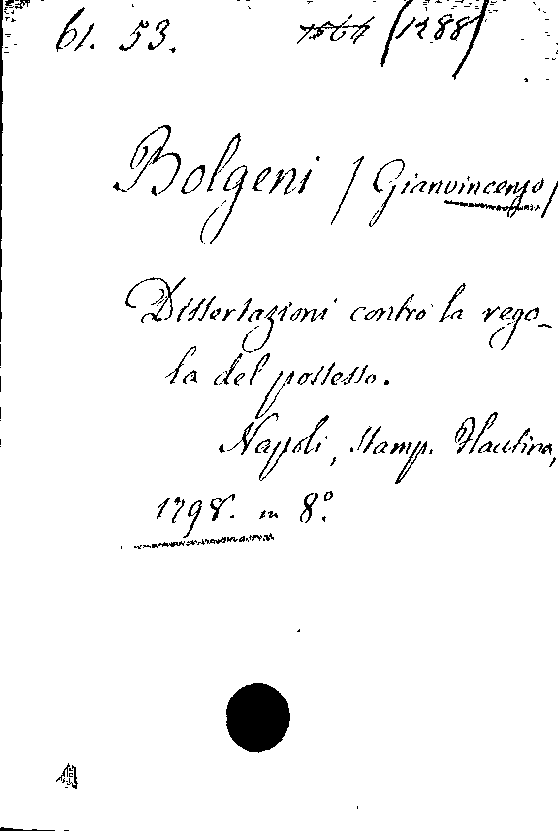 61. 53. 1564 (1288)
Bolgeni / Gianvincenzo /
Dissertazioni contro la rego-
la del possesso.
Napoli, Stamp. Flautina,
1798. in 8º.